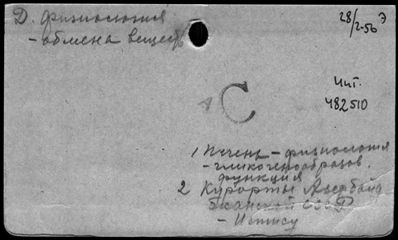 Д. физиология
- обмена веществ
28/2-56 Э
Чит.
482510
С
1 Печень - физиология
- гликогенообразов.
функция
2 Курорты Азербайд
жанской ССР
- Истису